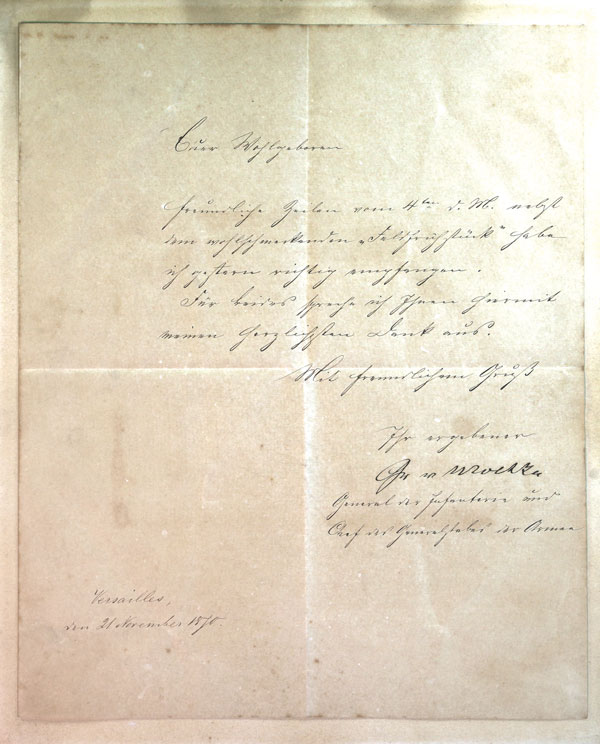 Euer Wohlgeboren
freundliche Zeilen vom 4ten d. M. nebst
dem wohlschmeckenden „Feldfrühstück" habe
ich gestern richtig empfangen.
Für beides spreche ich Ihnen hiermit
meinen herzlichsten Dank aus.
Mit freundlichem Gruß
Ihr ergebener
Gr v Moltke
General der Infanterie und
Chef des Generalstabes der Armee
Versailles,
den 21 November 1870.